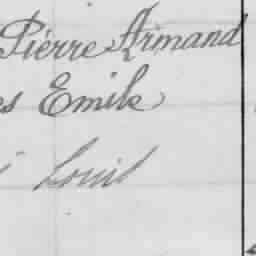 Pierre Armand
es Emile
Louis